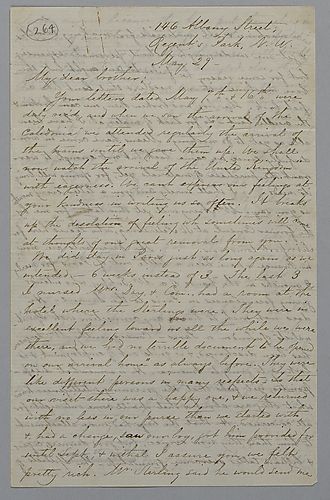 264
146 Albany Street,
Regent's Park, N. W.
May 29
My dear brother;
Your letters dated May & 16th were
duly rec'd, and when we saw the arrival of the
Caledonia we attended regularly the arrival of
the mails until we gave them up. We shall
now watch the arrival of the United Kingdom
with eagerness. We can't express our feelings at
your kindness in writing us so often. It breaks
up the desolation of feeling which sometimes will come
at thought of our great removal from you.
We did stay in Paris just as long again as we
intended. 6 weeks instead of 3. The last 3
I nursed Mrs. & Com. had a room at the
hotel where the Sterlings were. They were in
excellent feeling toward us all the while we were
there, and we had no terrible document to be found
on our arrival home as always before. They were
like different persons in many respects. So that
our visit there was a happy one, & we returned
with no less in our purse than we started with
& had a change, saw our boy, got him provided for
until Sept. & what I assure you we felt
pretty rich. Mr. Sterling said he would send me